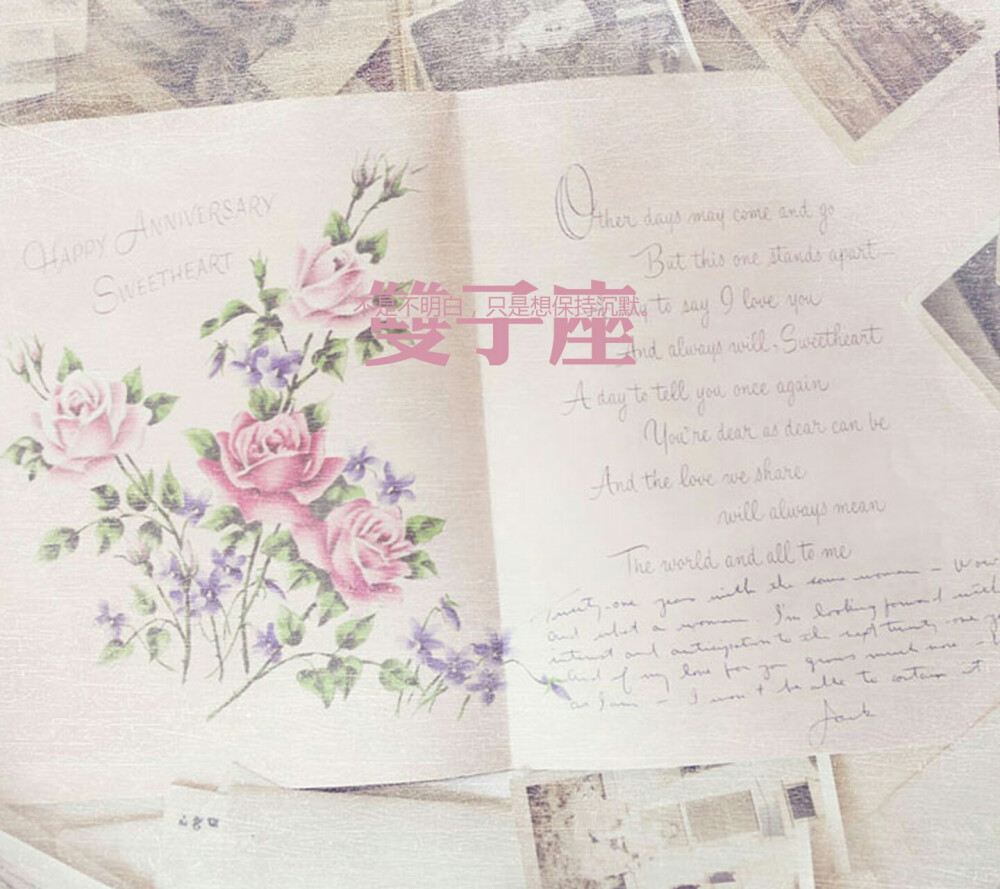 HAPPY ANNIVERSARY
SWEETHEART
不是不明白，只是想保持沉默。
雙子座
Other days may come and go
But this one stands apart—
to say I love you
And always will, Sweetheart
A day to tell you once again
You're dear as dear can be
And the love we share
will always mean
The world and all to me
Twenty-one years with the same woman — Wow
and what a woman I'm looking forward with
interest and anticipation to the next twenty-one
and if my love for you grows much more —
as I am — I won't be able to contain it
Jack